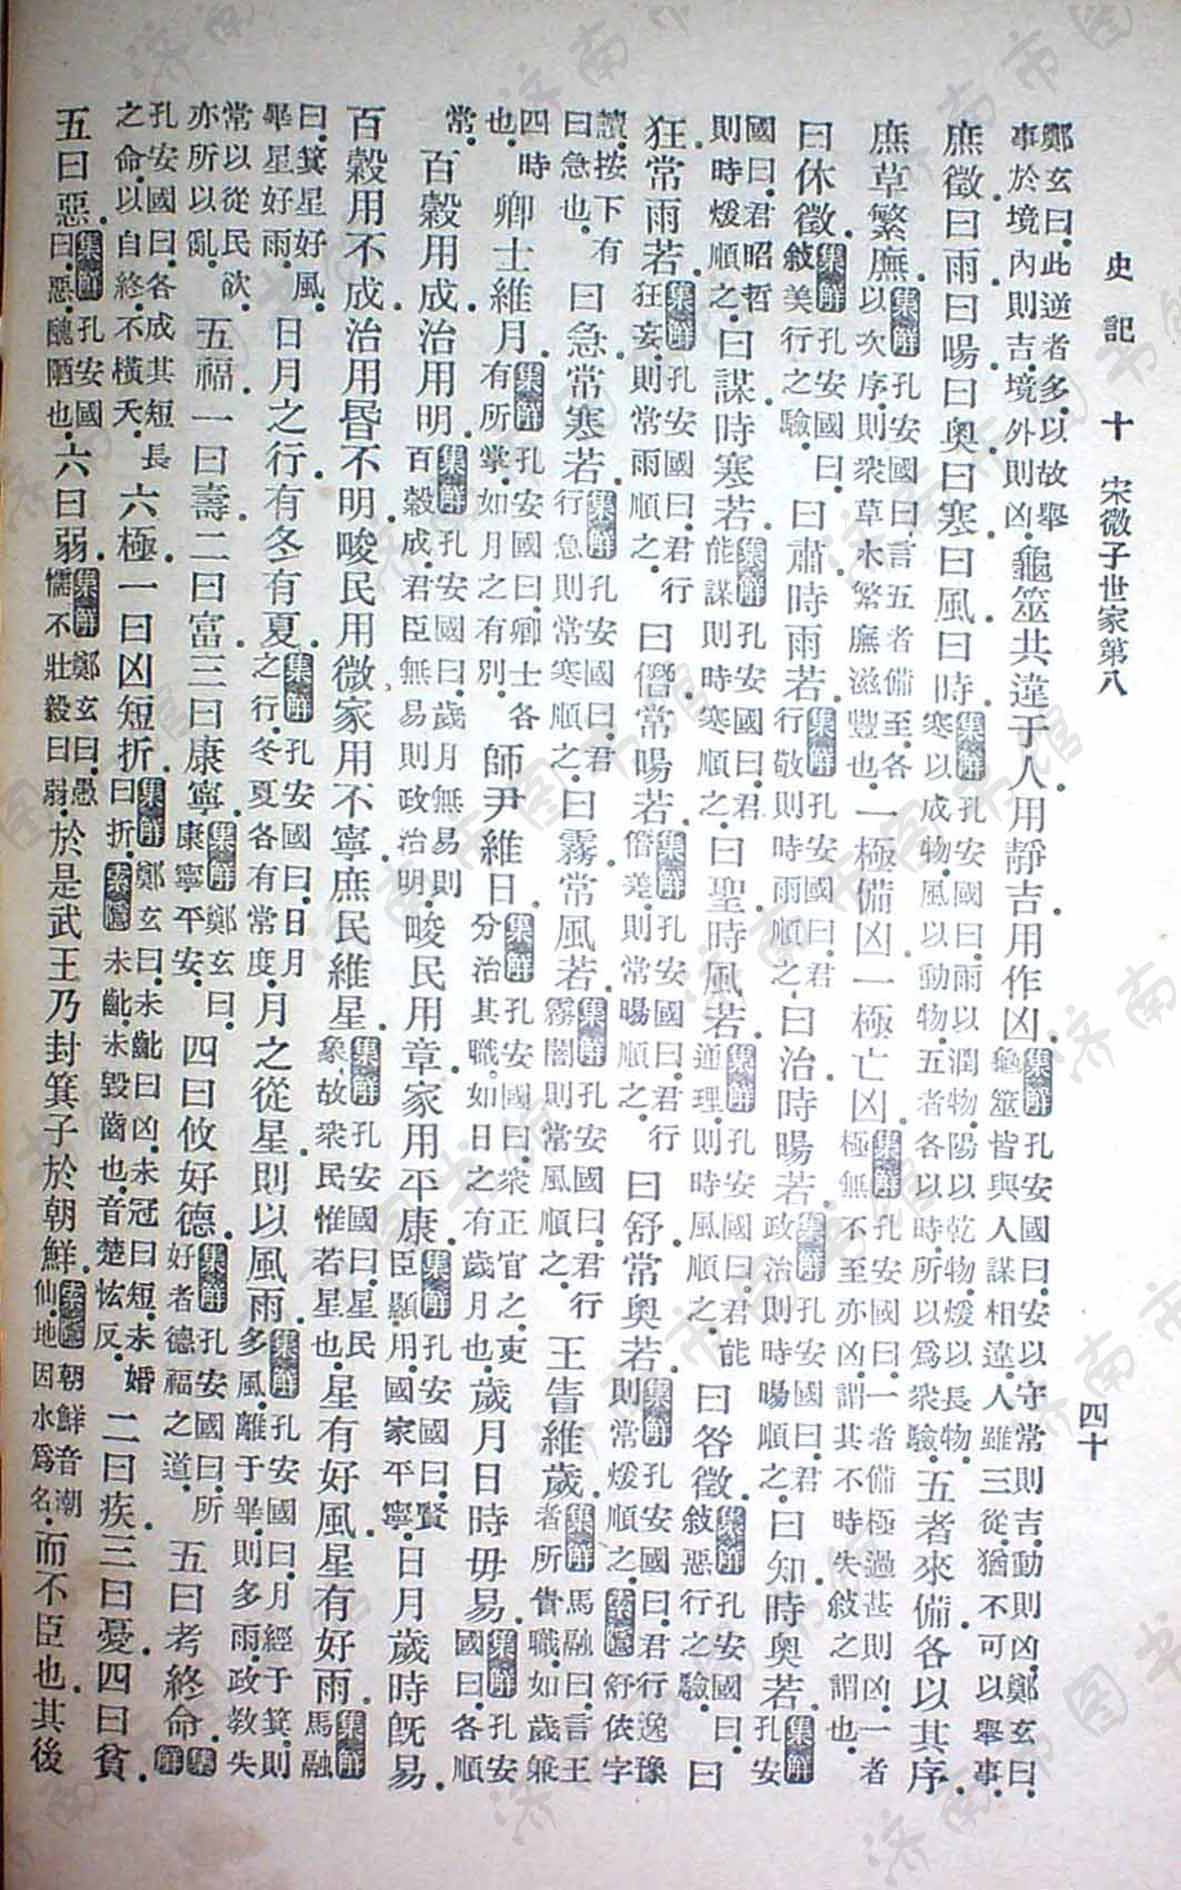 史記十 宋微子世家第八 四十
鄭玄曰.此逆者多.以故舉事於境內則吉.境外則凶.龜筮共違于人.用靜吉.用作凶.集解孔安國曰.安以守常則吉.動則凶.鄭玄曰.龜筮皆與人謀相違.人雖三從.猶不可以舉事.
庶徵.曰雨.曰暘.曰奧.曰寒.曰風.曰時.集解孔安國曰.雨以潤物.陽以乾物.煖以長物.寒以成物.風以動物.五者各以時.所以爲衆驗.五者來備.各以其序.
庶草繁廡.集解孔安國曰.言五者備至.各以次序.則衆草木繁廡滋豐也.一極備凶.一極亡凶.集解孔安國曰.一者備極過甚則凶.一者極無不至亦凶.謂其不時失敍之謂也.
曰休徵.集解孔安國曰.敍美行之驗.曰肅.時雨若.集解孔安國曰.君行敬則時雨順之.曰治.時暘若.集解孔安國曰.君政治則時暘順之.曰知.時奧若.集解孔安
國曰.君昭哲則時煖順之.曰謀.時寒若.集解孔安國曰.君能謀則時寒順之.曰聖.時風若.集解孔安國曰.君能通理.則時風順之.曰咎徵.集解孔安國曰.敍惡行之驗.曰
狂.常雨若.集解孔安國曰.君行狂妄.則常雨順之.曰僭.常暘若.集解孔安國曰.君行僭差.則常暘順之.曰舒.常奧若.集解孔安國曰.君行逸豫則常煖順之.索隱舒依字
讀.按下有曰急也.曰急.常寒若.集解孔安國曰.君行急則常寒順之.曰霧.常風若.集解孔安國曰.君行霧闇則常風順之.王眚維歲.集解馬融曰.言王者所眚職.如歲兼
四時也.卿士維月.集解孔安國曰.卿士各有所掌.如月之有別.師尹維日.集解孔安國曰.衆正官之吏分治其職.如日之有歲月也.歲月日時毋易.集解孔安國曰.各順
常.百穀用成.治用明.集解孔安國曰.歲月無易則百穀成.君臣無易則政治明.畯民用章.家用平康.集解孔安國曰.賢臣顯用.國家平寧.日月歲時旣易.
百穀用不成.治用昬不明.畯民用微.家用不寧.庶民維星.集解孔安國曰.星民象.故衆民惟若星也.星有好風.星有好雨.集解馬融
曰.箕星好風.畢星好雨.日月之行.有冬有夏.集解孔安國曰.日月之行.冬夏各有常度.月之從星.則以風雨.集解孔安國曰.月經于箕.則多風.離于畢.則多雨.政教失
常以從民欲.亦所以亂.五福.一曰壽.二曰富.三曰康寧.集解鄭玄曰.康寧平安.四曰攸好德.集解孔安國曰.所好者德福之道.五曰考終命.集解
孔安國曰.各成其短長之命.以自終.不橫夭.六極.一曰凶短折.集解鄭玄曰.未齔曰凶.未冠曰短.未婚曰折.索隱未齔.未毀齒也.音楚恡反.二曰疾.三曰憂.四曰貧.
五曰惡.集解孔安國曰.惡.醜陋也.六曰弱.集解鄭玄曰.愚懦不壯毅曰弱.於是武王乃封箕子於朝鮮.索隱朝鮮音潮仙.地因水爲名.而不臣也.其後